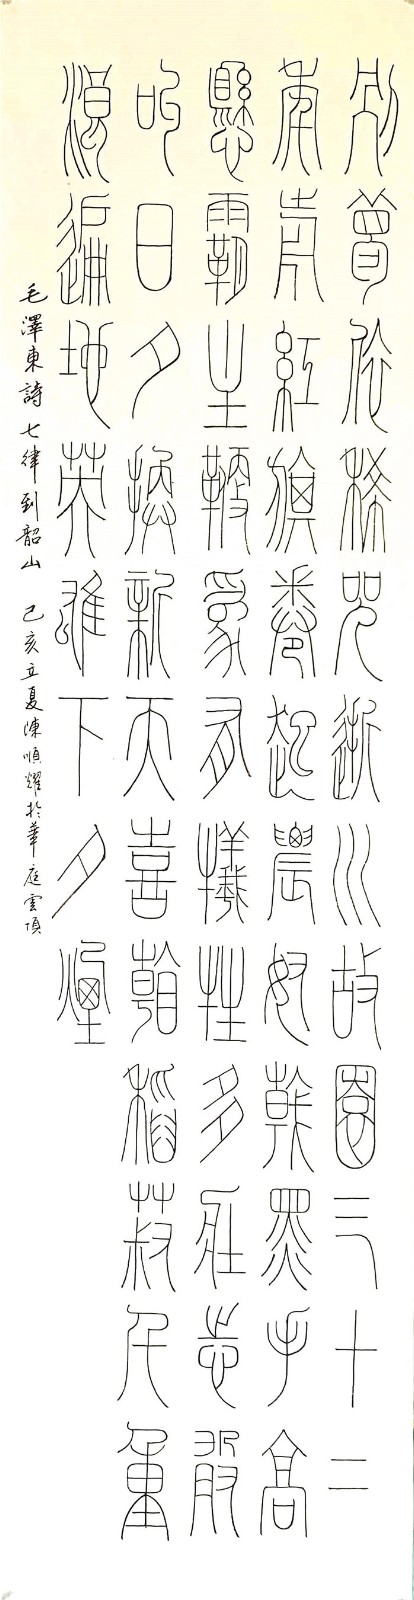 別夢依稀咒逝川故園三十二
年前紅旗卷起農奴戟黑手高
懸霸主鞭為有犧牲多壯志敢
叫日月換新天喜看稻菽千重
浪遍地英雄下夕煙
毛澤東詩 七律到韶山 己亥立夏陳順耀於華庭雲頂